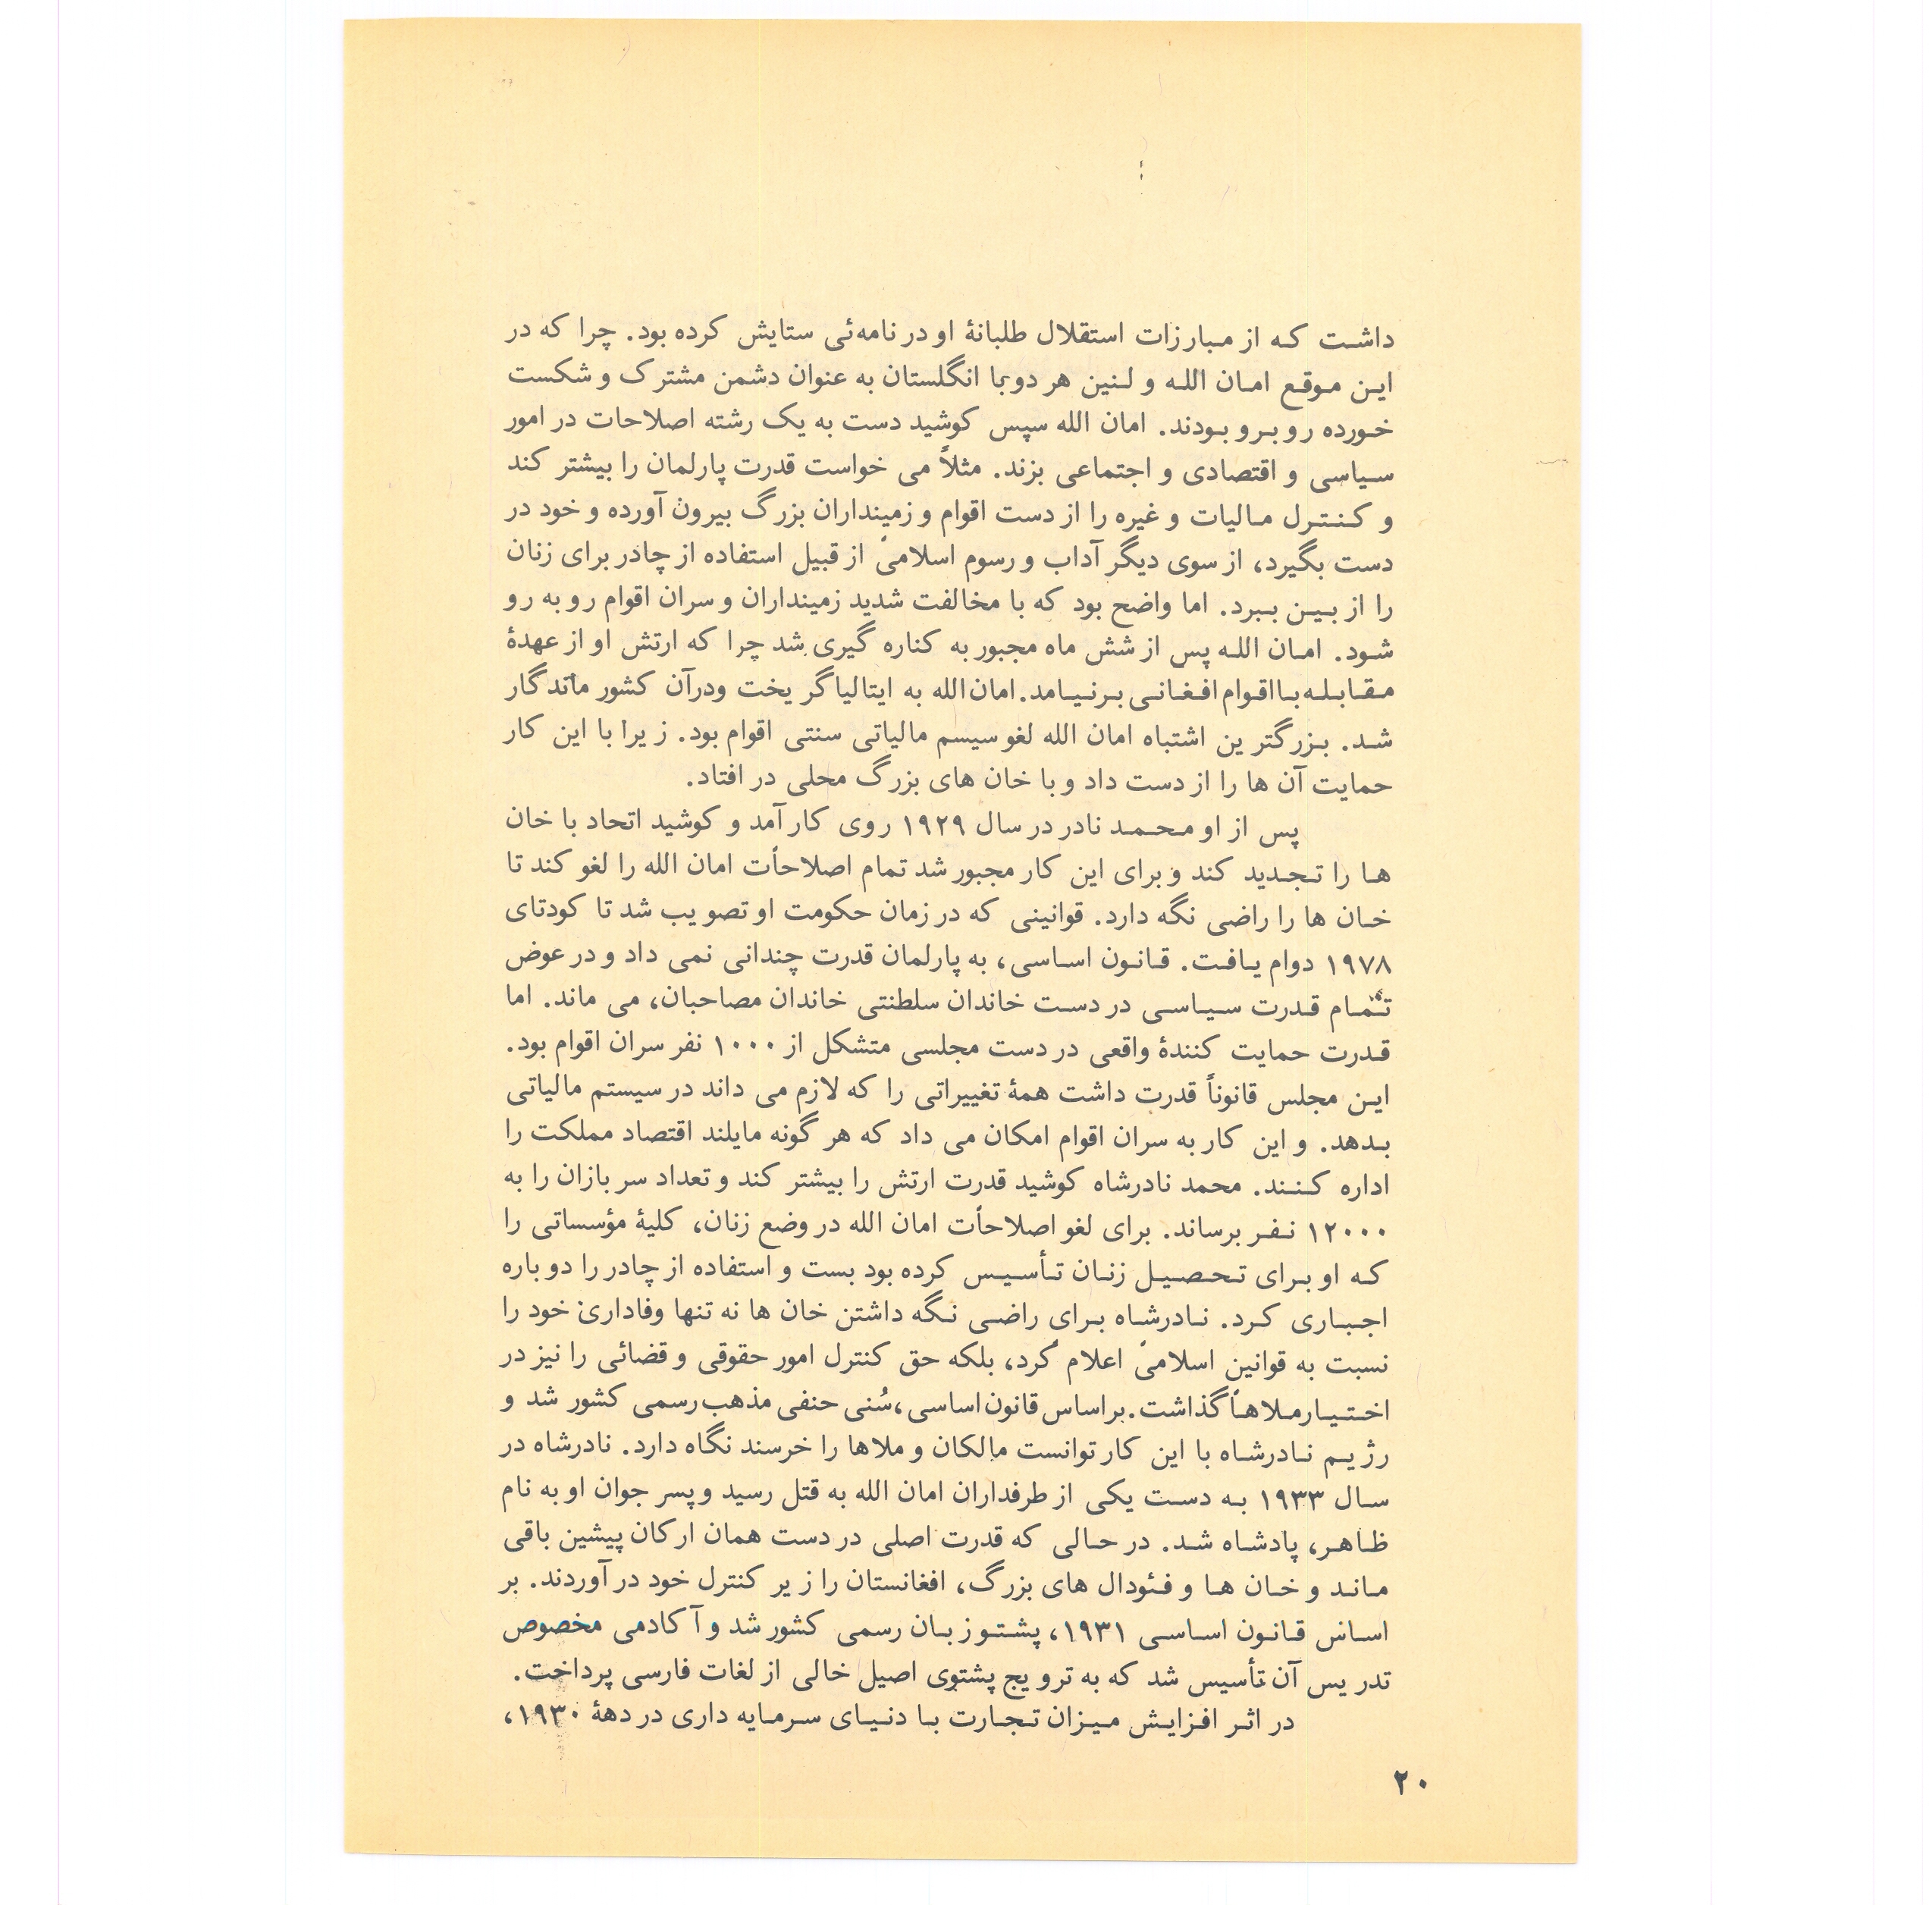 داشت که از مبارزات استقلال طلبانهٔ او در نامه‌ئی ستایش کرده بود. چرا که در
این موقع امان الله و لنین هر دو با انگلستان به عنوان دشمن مشترک و شکست
خورده رو برو بودند. امان الله سپس کوشید دست به یک رشته اصلاحات در امور
سیاسی و اقتصادی و اجتماعی بزند. مثلاً می خواست قدرت پارلمان را بیشتر کند
و کنترل مالیات و غیره را از دست اقوام و زمینداران بزرگ بیرون آورده و خود در
دست بگیرد، از سوی دیگر آداب و رسوم اسلامی از قبیل استفاده از چادر برای زنان
را از بین ببرد. اما واضح بود که با مخالفت شدید زمینداران و سران اقوام رو به رو
شود. امان الله پس از شش ماه مجبور به کناره گیری شد چرا که ارتش او از عهدهٔ
مقابله با اقوام افغانی برنیامد. امان الله به ایتالیا گریخت ودرآن کشور ماندگار
شد. بزرگترین اشتباه امان الله لغو سیسم مالیاتی سنتی اقوام بود. زیرا با این کار
حمایت آن ها را از دست داد و با خان های بزرگ محلی در افتاد.
پس از او محمد نادر در سال ۱۹۲۹ روی کار آمد و کوشید اتحاد با خان
ها را تجدید کند و برای این کار مجبور شد تمام اصلاحات امان الله را لغو کند تا
خان ها را راضی نگه دارد. قوانینی که در زمان حکومت او تصویب شد تا کودتای
۱۹۷۸ دوام یافت. قانون اساسی، به پارلمان قدرت چندانی نمی داد و در عوض
تمام قدرت سیاسی در دست خاندان سلطنتی خاندان مصاحبان، می ماند. اما
قدرت حمایت کنندهٔ واقعی در دست مجلسی متشکل از ۱۰۰۰ نفر سران اقوام بود.
این مجلس قانوناً قدرت داشت همهٔ تغییراتی را که لازم می داند در سیستم مالیاتی
بدهد. و این کار به سران اقوام امکان می داد که هر گونه مایلند اقتصاد مملکت را
اداره کنند. محمد نادرشاه کوشید قدرت ارتش را بیشتر کند و تعداد سر بازان را به
۱۲۰۰۰ نفر برساند. برای لغو اصلاحات امان الله در وضع زنان، کلیهٔ مؤسساتی را
که او برای تحصیل زنان تأسیس کرده بود بست و استفاده از چادر را دو باره
اجباری کرد. نادرشاه برای راضی نگه داشتن خان ها نه تنها وفاداری خود را
نسبت به قوانین اسلامی اعلام کرد، بلکه حق کنترل امور حقوقی و قضائی را نیز در
اختیار ملاها گذاشت. براساس قانون اساسی، سُنی حنفی مذهب رسمی کشور شد و
رژیم نادرشاه با این کار توانست مالکان و ملاها را خرسند نگاه دارد. نادرشاه در
سال ۱۹۳۳ به دست یکی از طرفداران امان الله به قتل رسید و پسر جوان او به نام
ظاهر، پادشاه شد. در حالی که قدرت اصلی در دست همان ارکان پیشین باقی
ماند و خان ها و فئودال های بزرگ، افغانستان را زیر کنترل خود در آوردند. بر
اساس قانون اساسی ۱۹۳۱، پشتو زبان رسمی کشور شد و آکادمی مخصوص
تدریس آن تأسیس شد که به ترویج پشتوی اصیل خالی از لغات فارسی پرداخت.
در اثر افزایش میزان تجارت با دنیای سرمایه داری در دههٔ ۱۹۳۰،
۲۰